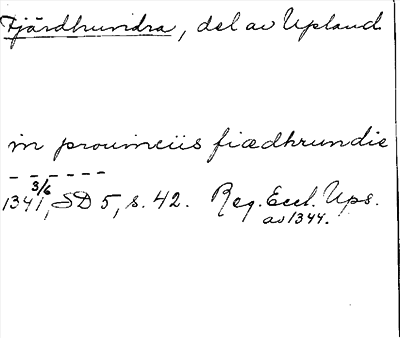 Fjärdhundra, del av Upland
in prouinciis fiædhrundie
- - - - - -
1341 3/6, SD 5, s. 42. Reg. Eccl. Ups.
av 1344.